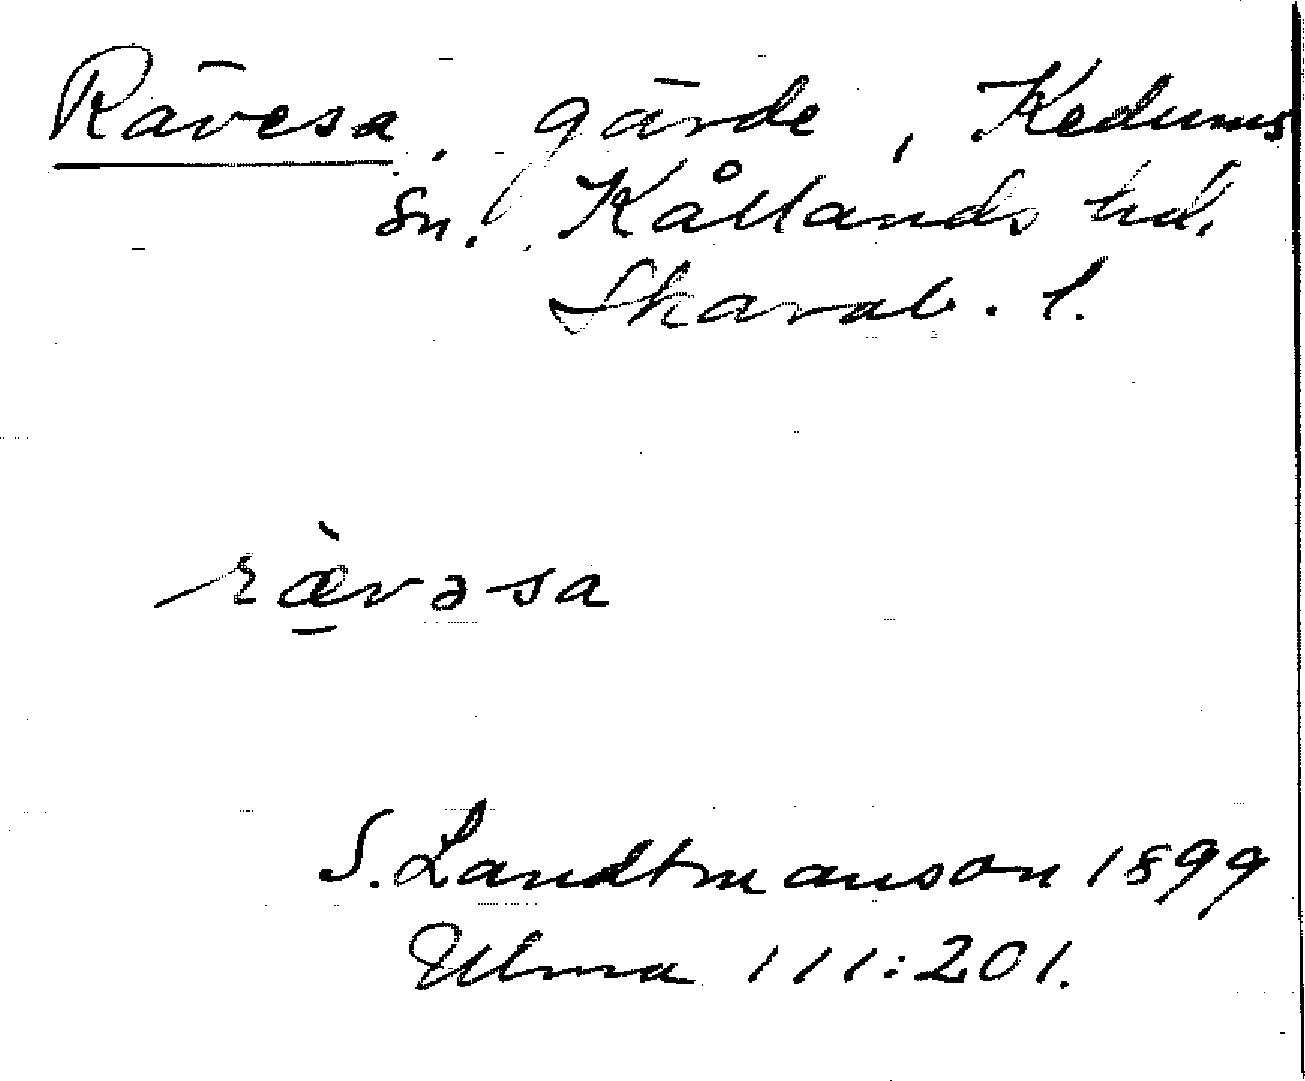 Rävesa, gärde, Kedums
sn., Kållands hd.
Skarab. l.
ræ̠̀vəsa
S. Landtmanson 1899
Ulma 111:201.